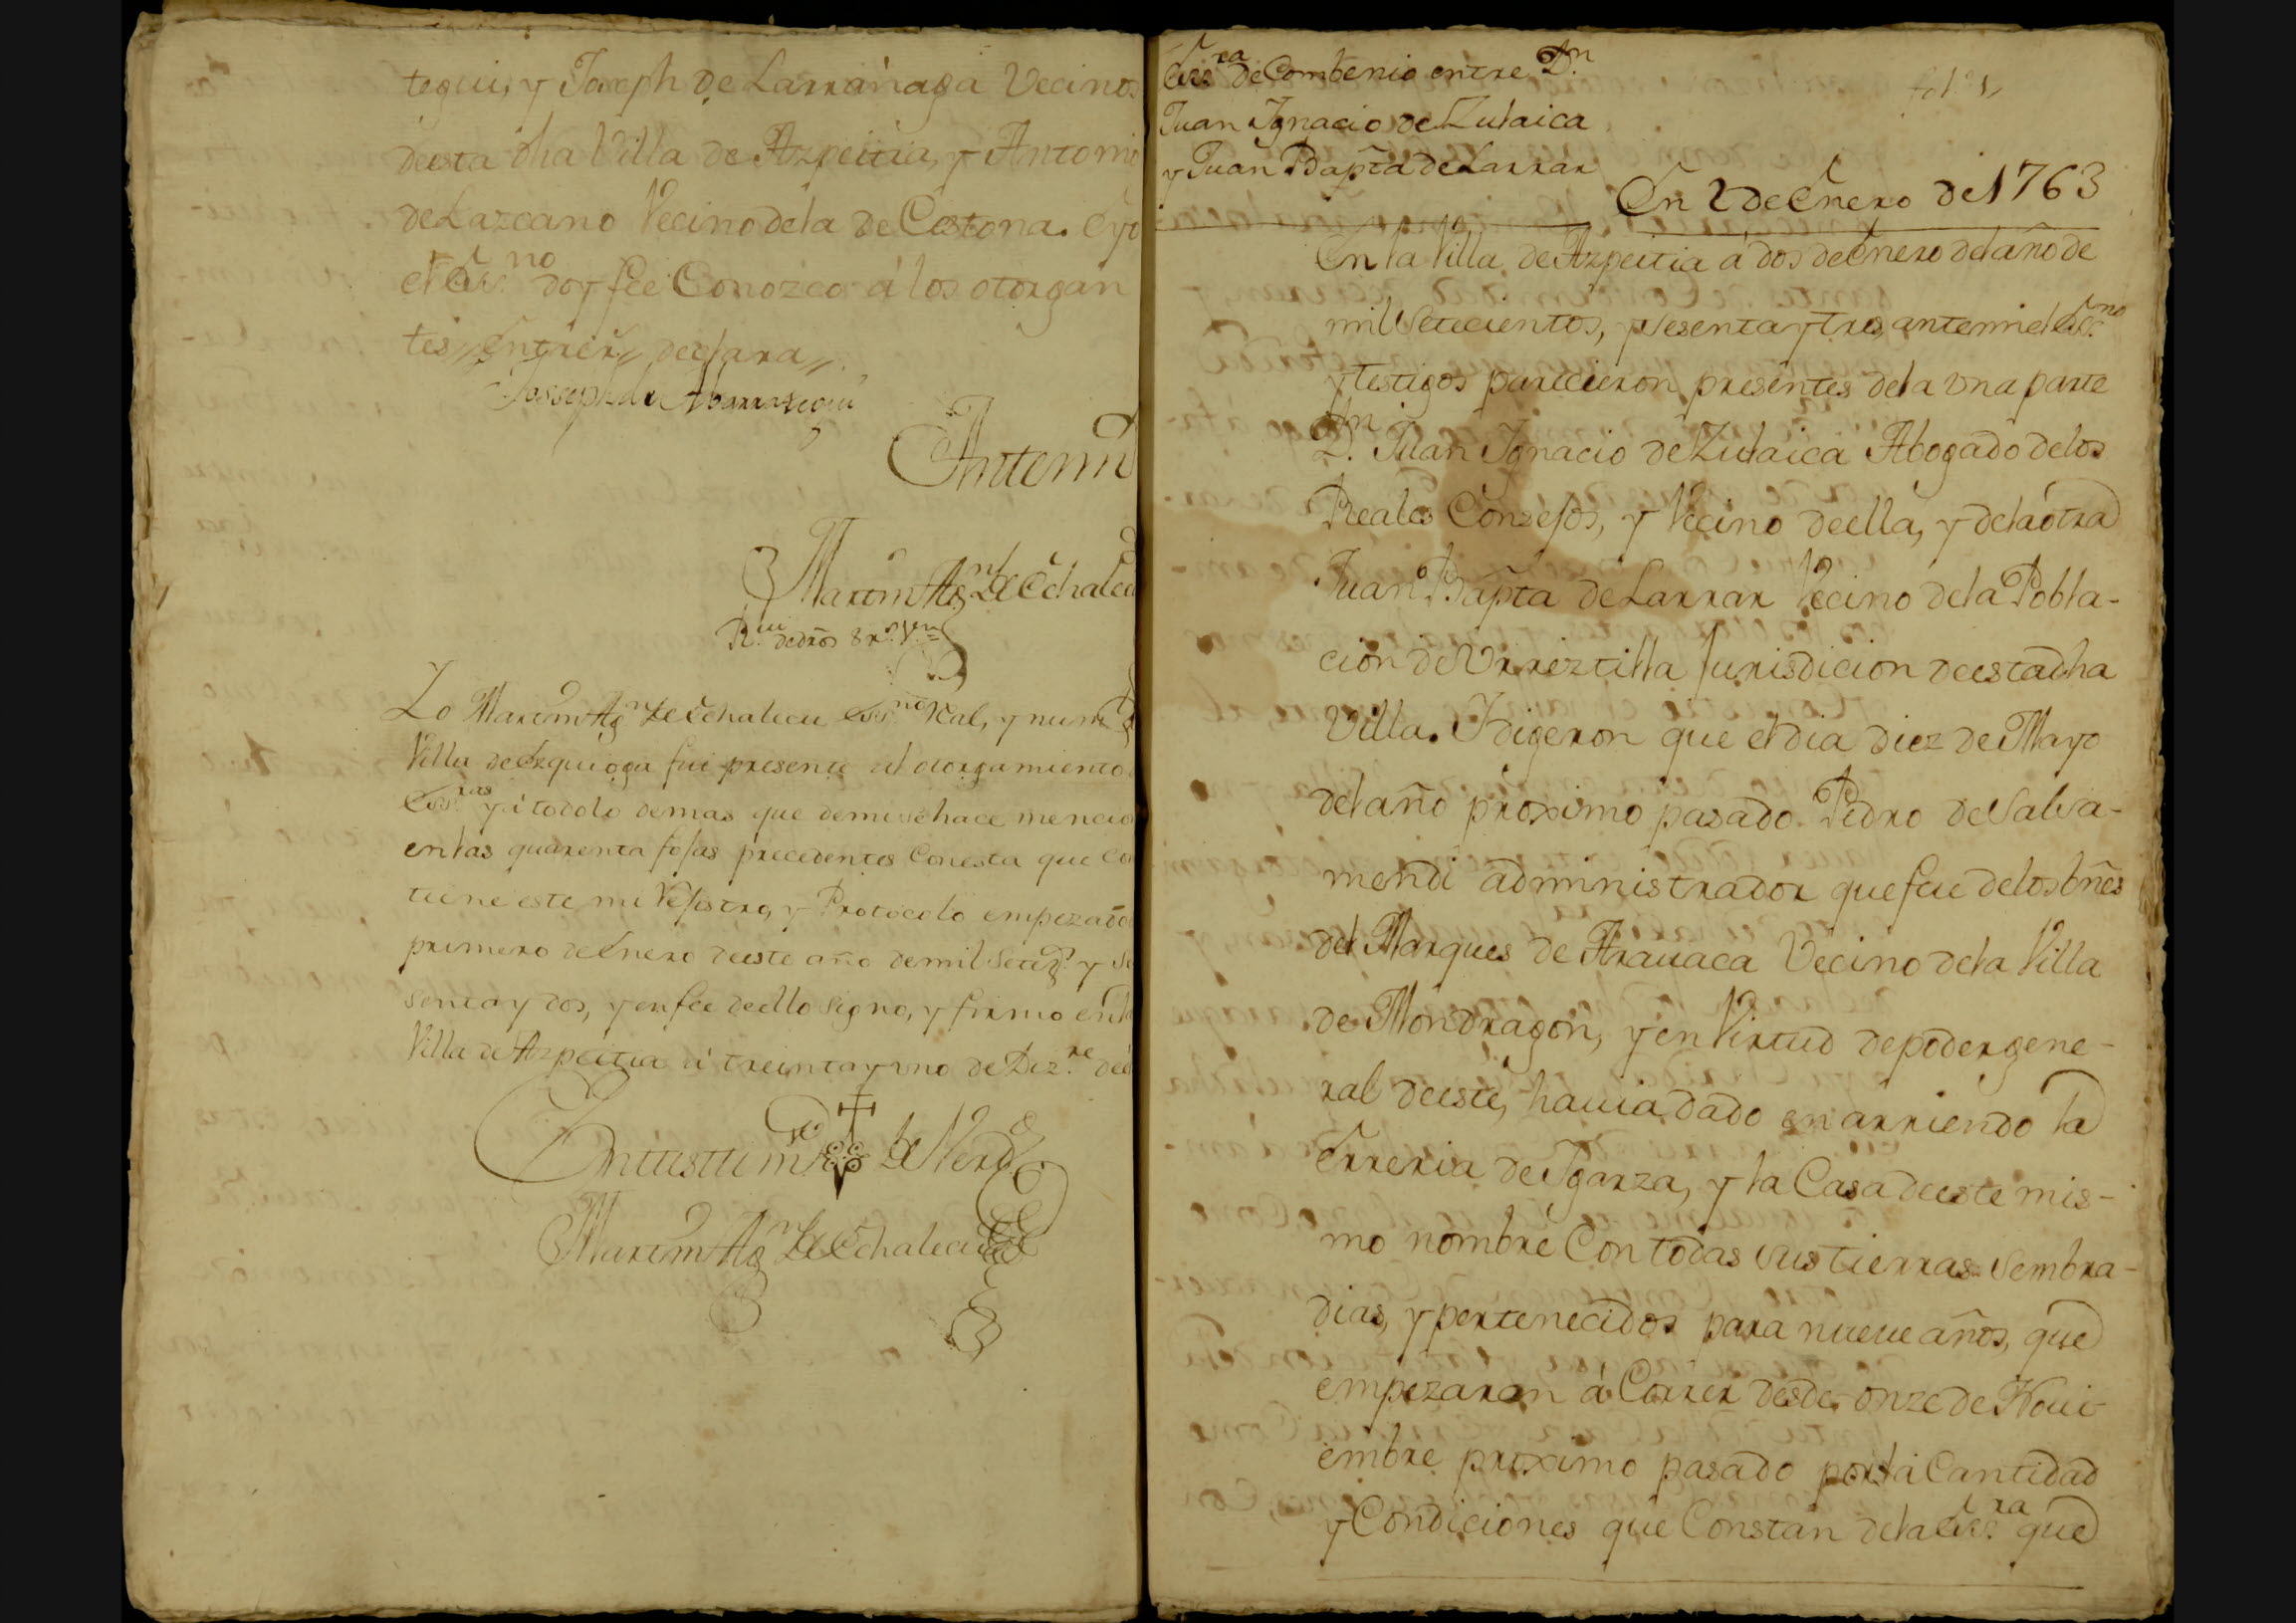 tegui, y Joseph de Larrañaga Vecinos
deesta dha Villa de Azpeitia, y Antonio
de Lazcano Vecino dela de Cestona. E yo
el Ess.no doy fee Conozco á los otorgan
tes, entrerr.s declara,,
Josseph de Abarrategui
Antemi
Martin Ag.n de Echalecu
R.ui dedros 8 r.s v.n
Yo Martin Ag.n de Echalecu Ess.no Real, y num.l
Villa de Ezquioga fui presente al otorgamiento
Ess.ras y á todolo demas que demi se hace mencio
en las quarenta fojas precedentes Conesta que Con
tiene este mi Rejistro, y Protocolo empezado
primero de Enero deeste año demil Setez.s y se
senta y dos, y en fee deello signo, y firmo en la
Villa de Azpeitia á treinta y uno de Diz.re de
En testim.o de Verd.
Martin Ag.n de Echalecu
Ess.ra de Combenio entre D.n
Juan Ygnacio de Zulaica
y Juan Bap̃ta de Larrar
fol. 1
En 2 de Enero de 1763
En la Villa de Azpeitia á dos de Enero del año de
mil Setecientos, y sesenta y tres, ante mi el Ess.no
y testigos parecieron presentes dela una parte
D.n Juan Ygnacio de Zulaica Abogado delos
Reales Consejos, y Vecino deella, y dela otra
Juan Bap̃ta de Larrar Vecino dela Pobla-
cion de Urreztilla Jurisdicion deesta dha
Villa. Y digeron que el dia diez de Mayo
del año proximo pasado Pedro de Salva-
mendi administrador que fue delos bñes
del Marques de Arauaca Vecino dela Villa
de Mondragon, y en Virtud de poder gene-
ral deeste, hauia dado en arriendo la
errería de Ygarza, y la Casa deeste mis-
mo nombre Con todas sus tierras sembra-
dias, y pertenecidos para nueue años, que
empezaron á Correr desde onze de Noui-
embre proximo pasado por la Cantidad
y Condiciones que Constan dela Ess.ra que